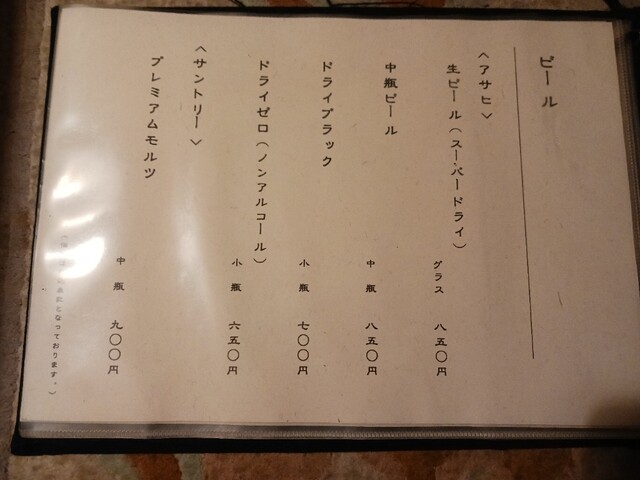 ビール
〈アサヒ〉
生ビール(スーパードライ) グラス 八五〇円
中瓶ビール 中瓶 八五〇円
ドライブラック 小瓶 七〇〇円
ドライゼロ(ノンアルコール) 小瓶 六五〇円
〈サントリー〉
プレミアムモルツ 中瓶 九〇〇円
となっております。)